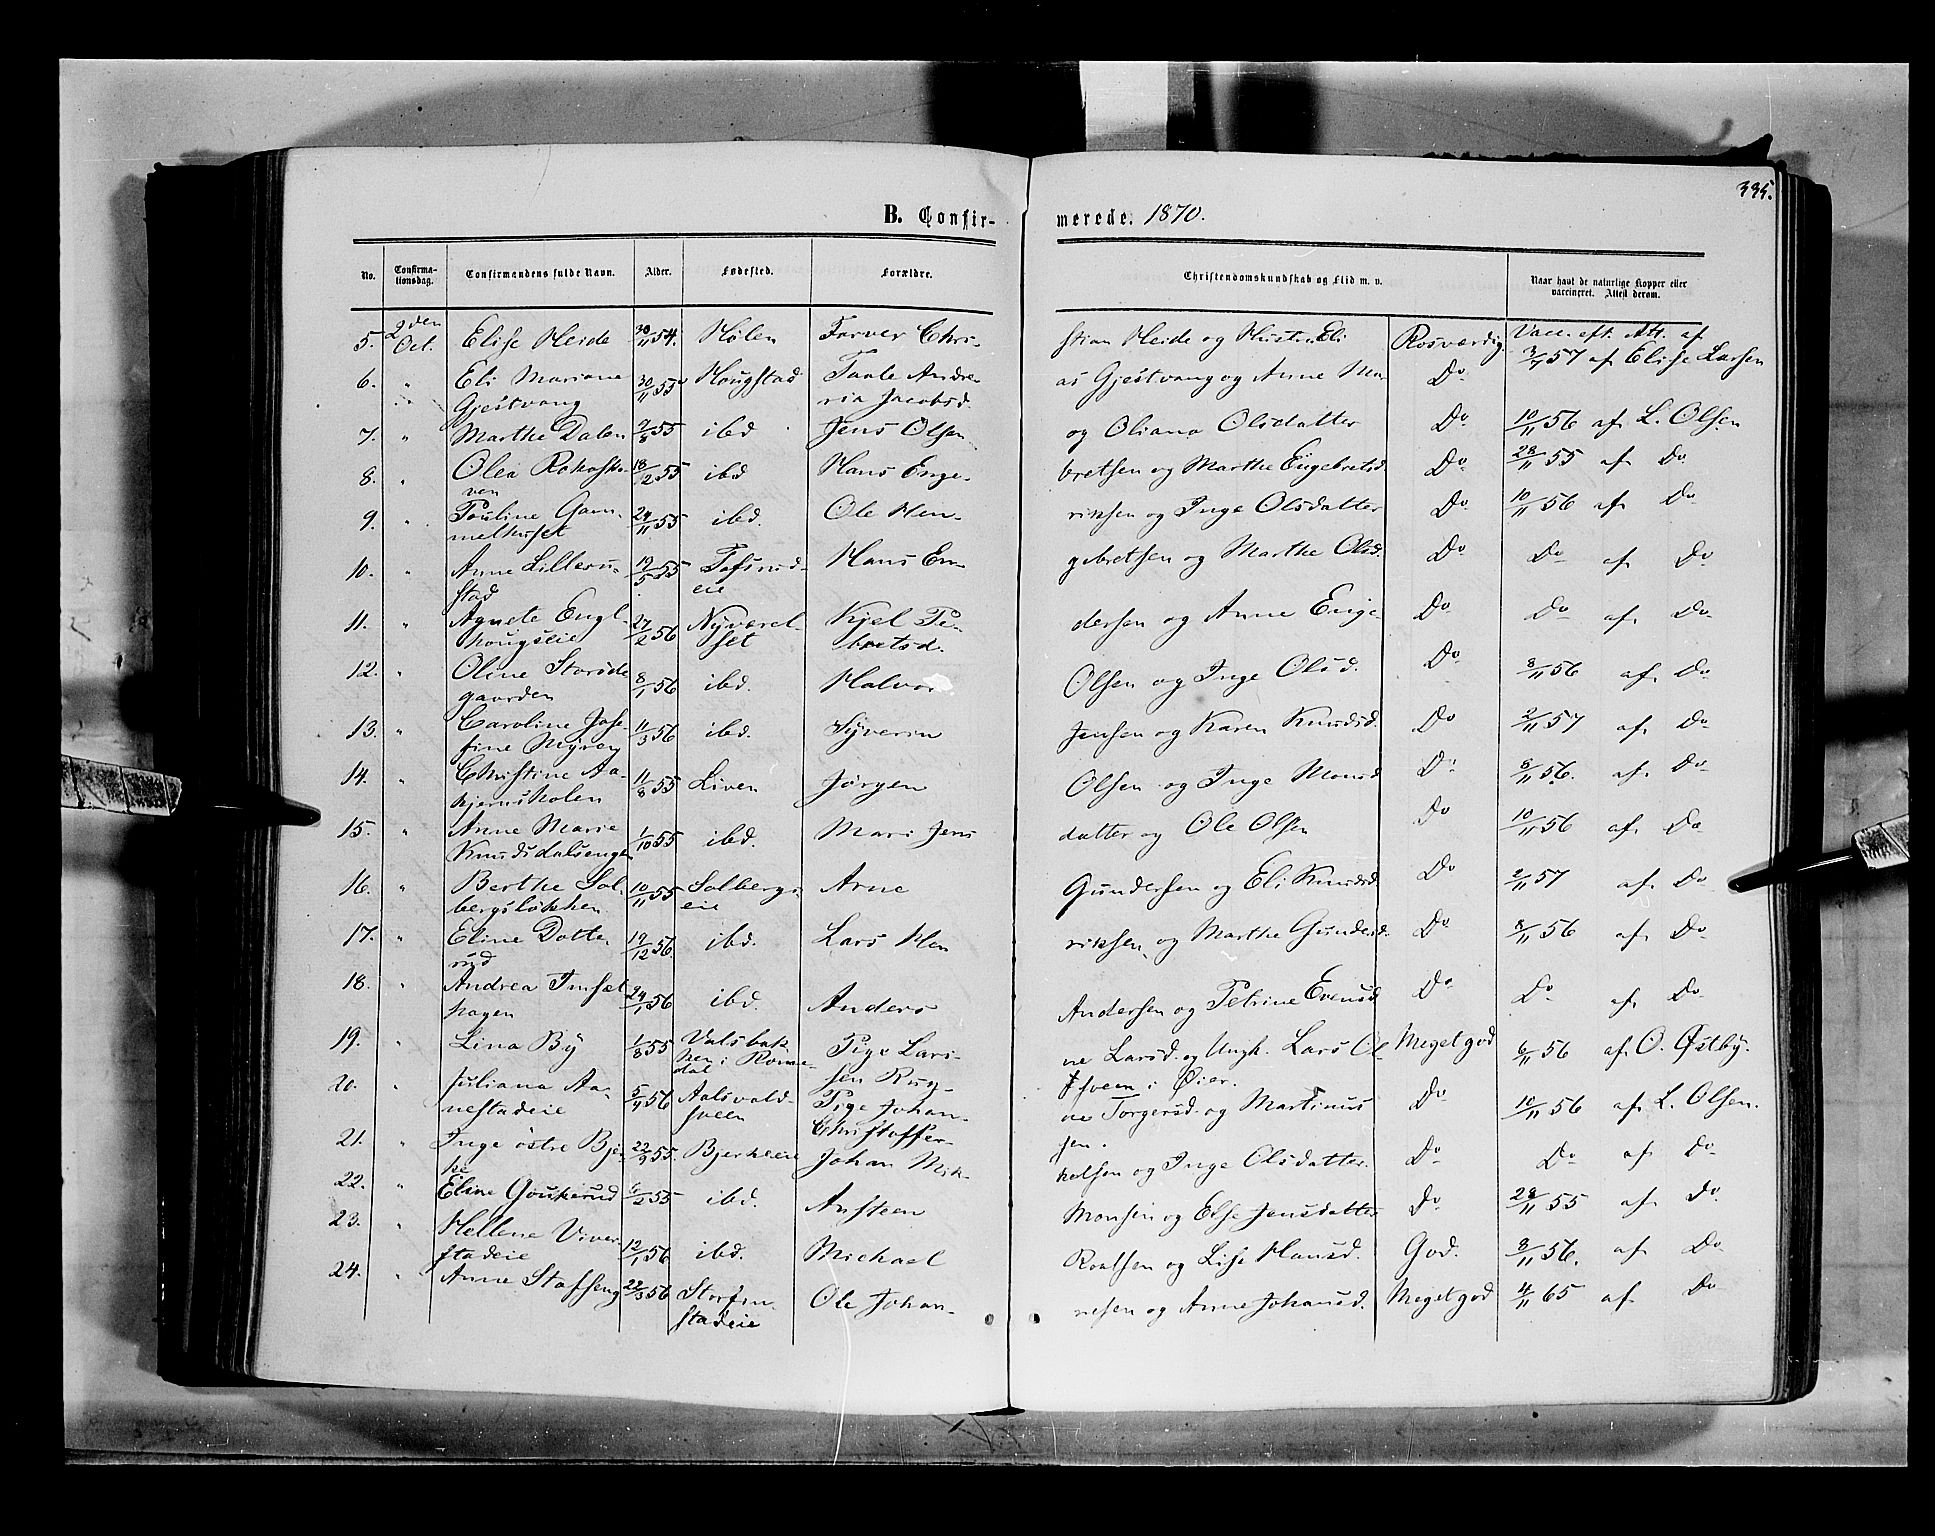 335.
B. Confirmerede. 1870.
No. Confirmationsdag. Confirmandens fulde Navn. Alder. Fødested. Forældre. Christendomskundskab og Flid m. v. Naar havt de naturlige Kopper eller vaccineret. Attest derom.
5. 2den Oct. Elise Heide 30/11 54. Hølen Farver Christian Heide og Hustru Eli Rosværdig Vacc. eft. Att. af 3/7 57 af Elise Larsen
6. " Eli Mariane Gjestvang 30/11 55 Hougstad Taale Andreas Gjestvang og Anne Maria Jacobsd. Do
7. " Marthe Dalen 2/8 55 ibd Jens Olsen og Oliana Olsdatter Do 10/11 56 af L. Olsen
8. " Olea Rokoskoven 18/2 55 ibd Hans Engebretsen og Marthe Engebretsd. Do 28/11 55 af Do
9. " Pauline Gammelhuset 24/11 55 ibd. Ole Henriksen og Inge Olsdatter Do 10/11 56 af Do
10. " Anne Lillerustad 19/5 55 eie Hans Engebretsen og Marthe Olsd. Do Do af Do
11. " Agnete Englhougseie 27/2 56 Nyverelset Kjel Pedersen og Anne Engebretsd. Do Do af Do
12. " Oline Storødegaarden 8/1 56 ibd. Halvor Olsen og Inge Olsd. Do 8/11 56 af Do
13. " Caroline Josefine Myren 11/3 56 ibd. Syverin Jensen og Karen Knudsd. Do 2/11 57 af Do
14. " Christine Aakjernsholen 11/8 55 Liven Jørgen Olsen og Inge Monsd Do 8/11 56. af Do
15. " Anne Marie Knudsdalsengen 1/10 55 ibd. Mari Jensdatter og Ole Olsen Do 10/11 56 af Do
16. " Berthe Solbergsløkken 10/11 55 Solbergseie Arne Gundersen og Eli Knudsd. Do 2/11 57 af Do
17. " Eline Dotterud 19/12 56. ibd. Lars Henriksen og Marthe Gundersd. Do 8/11 56 af Do
18. " Andrea Imsethagen 24/1 56 ibd. Anders Andersen og Petrine Evensd Do Do af Do
19. " Lina By 1/8 55 Valsbakken i Romedal Pige Larsine Larsd. og Ungk. Lars Olsen i Øier. Meget god 6/11 56 af O. Østby.
20. " Juliana Aanestadeie 5/4 56 Aalsvoldsveen Pige Johanne Torgersd. og Martinus Christoffersen. Do 10/11 56 af L. Olsen.
21. " Inge østre Bjerke 22/9 55. Bjerkeeie Johan Mikkelsen og Inge Olsdatter. Do Do af Do
22. " Eline Gaukerud 6/2 55 ibd. Ansteen Monsen og Else Jensdatter Do 28/11 55 af Do
23. " Hellene Viverstadeie 12/1 56 ibd. Michael Roalsen og Lise Hansd. God. 8/11 56. af Do
24. " Anne Stafseng 22/3 56 Storfinstadeie Ole Johannesen og Anne Johansd. Meget god 4/11 65 af Do